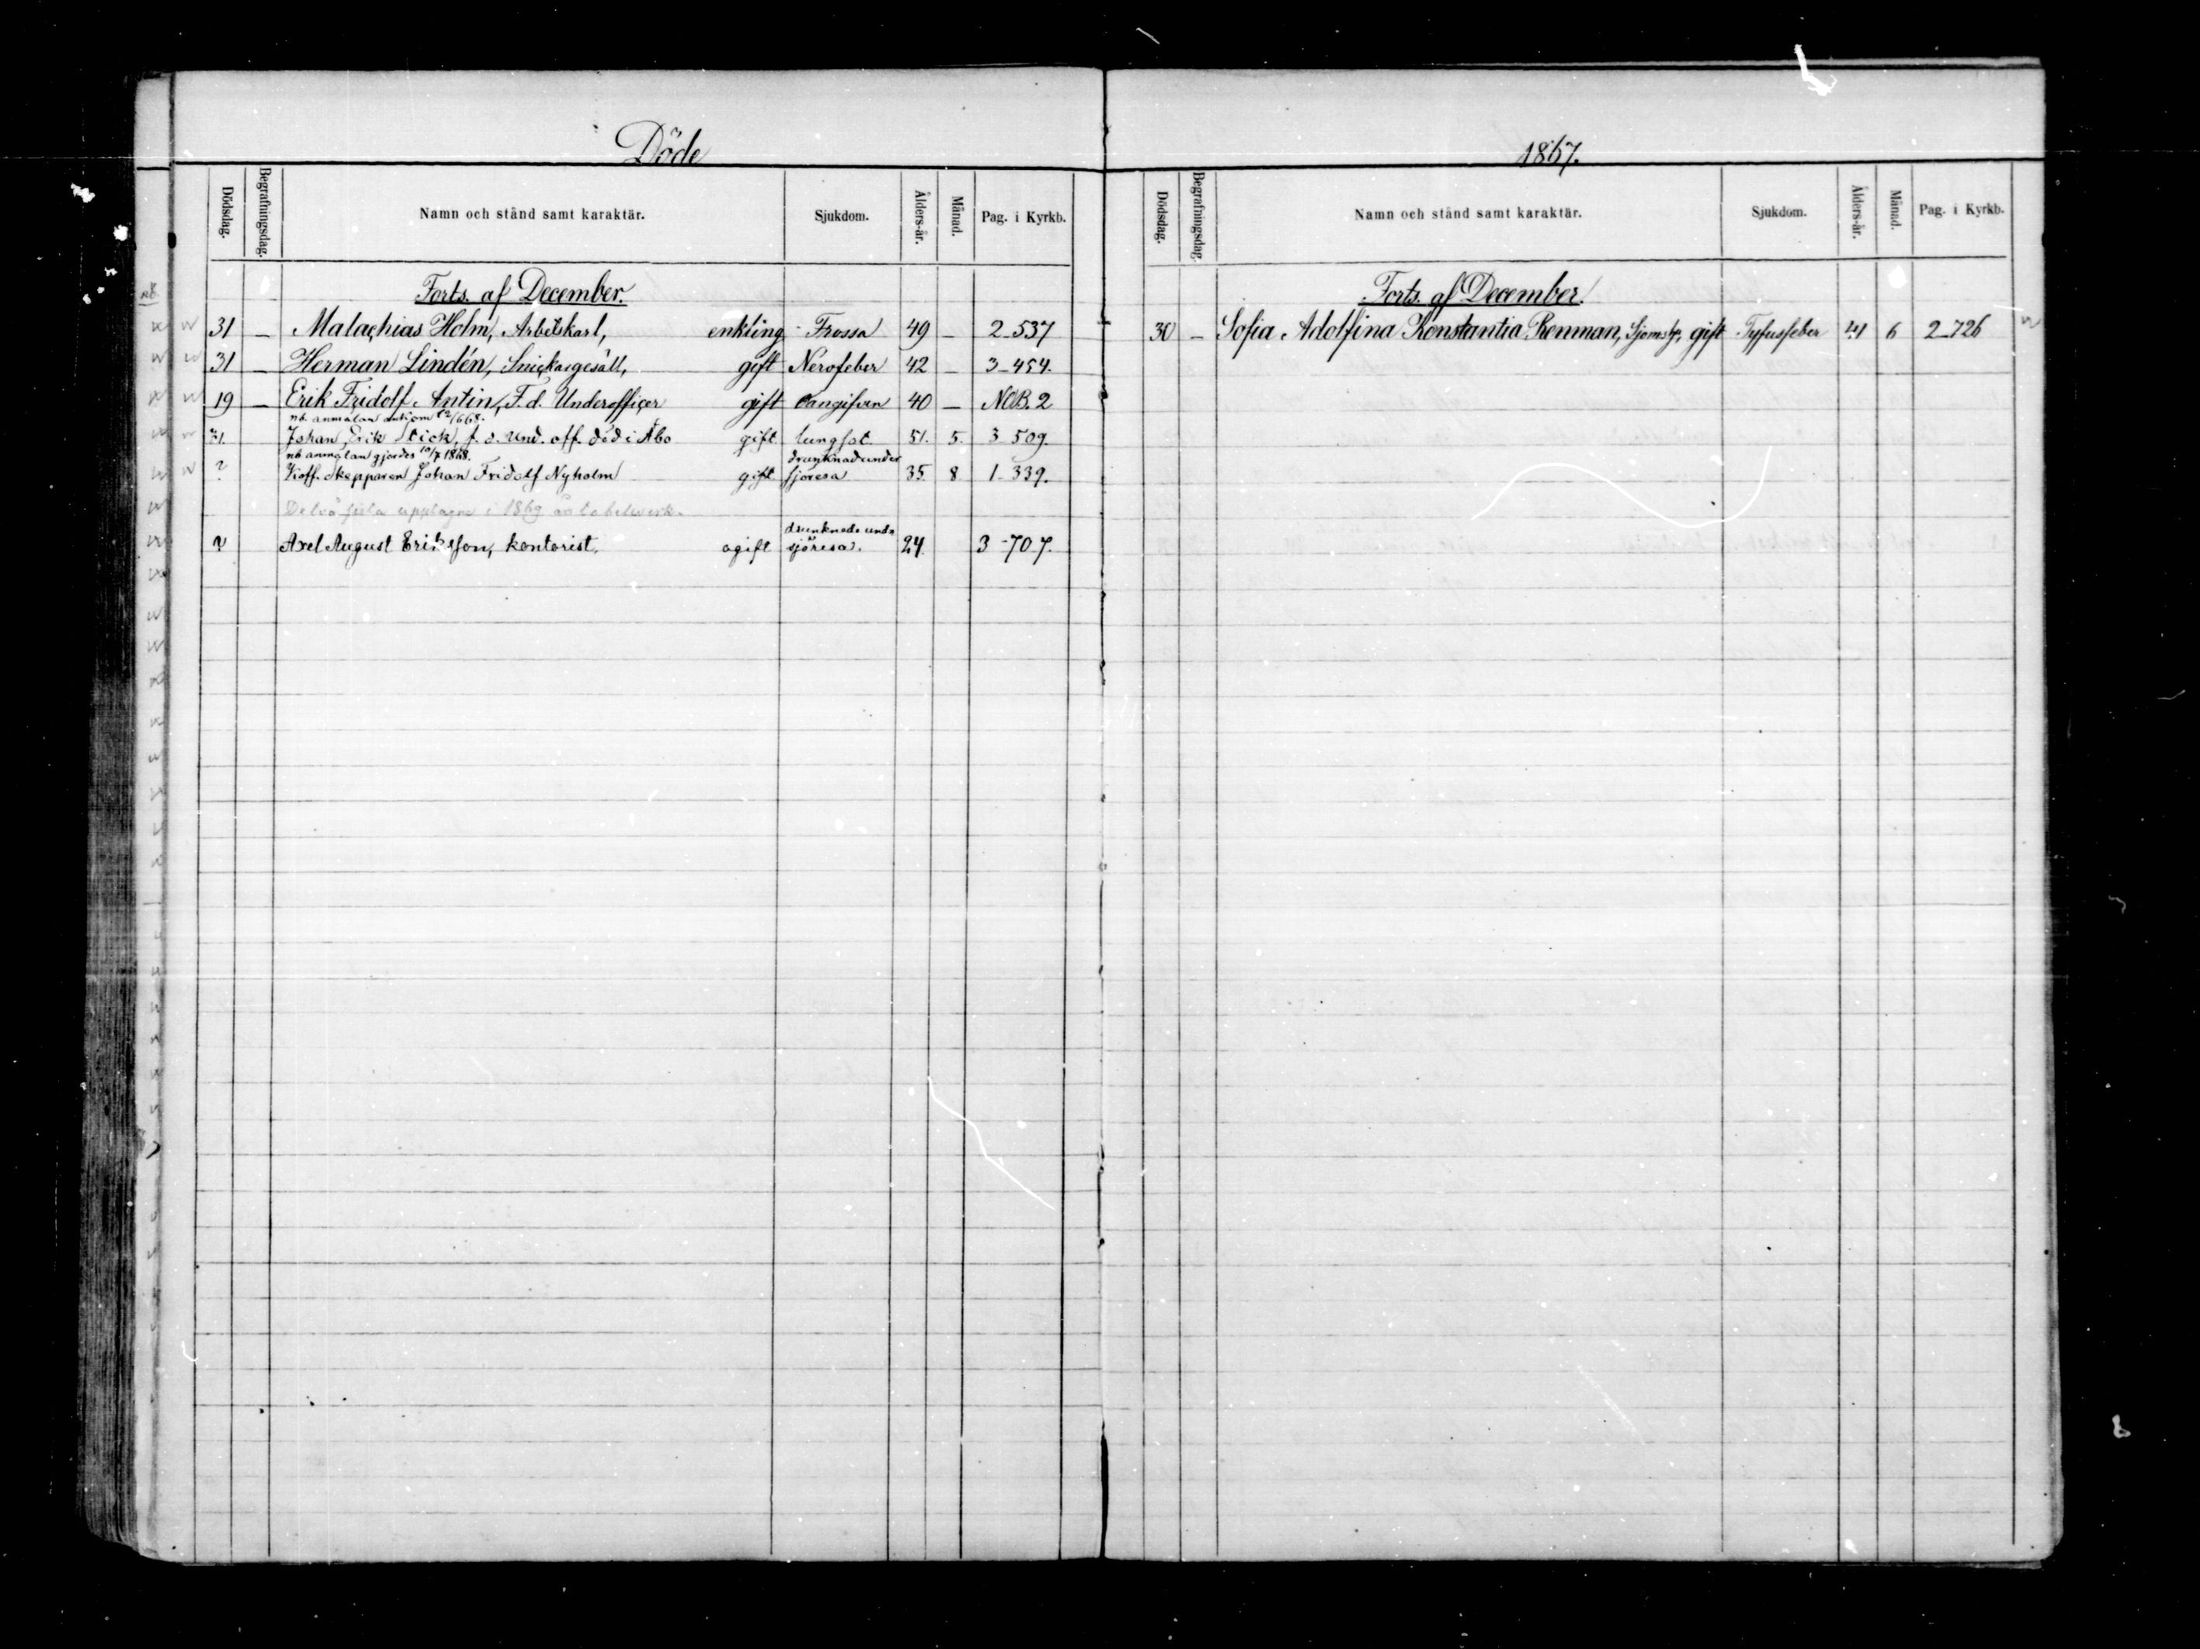 Döde
Dödsdag. Begrafningsdag. Namn och stånd samt karaktär. Sjukdom. Ålders-år. Månad. Pag. i Kyrkb.
Forts. af December.
31 — Malachias Holm, Arbetskarl, enkling Frossa 49 — 2-537
31 — Herman Lindén, Snickargesäll, gift Nervfeber 42 — 3-454.
19 — Erik Fridolf Antin, F.d. Underofficer gift oangifven 40 — NOB. 2
nb. anmälan ankom 12/6 68.
31. Johan Erik Stick, f. d. Und. off. död i Åbo gift lungsot 51. 5. 3 509.
nb anmälan gjordes 10/7 1868. drunknad under
? Koff. skepparen Johan Fridolf Nyholm gift sjöresa 35. 8 1-339.
upptagne i 1869
drunknade und.
? Axel August Eriksson, kontorist, ogift sjöresa. 24. 3-707.
1867.
Dödsdag. Begrafningsdag. Namn och stånd samt karaktär. Sjukdom. Ålders-år. Månad. Pag. i Kyrkb.
Forts. af December.
30 — Sofia Adolfina Konstantia Renman, gift Tyfusfeber 41 6 2-726